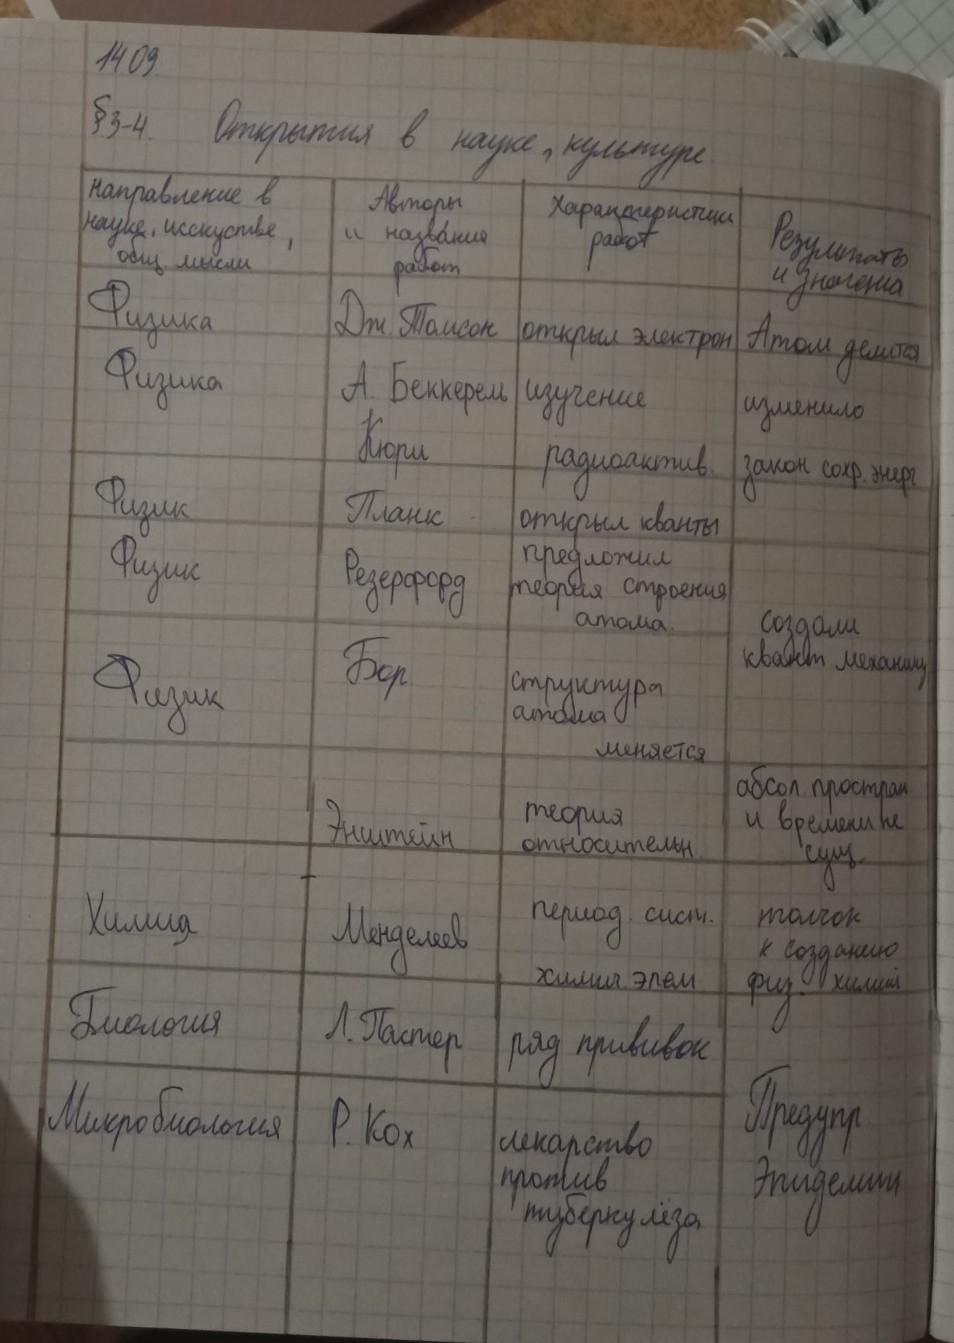 14 09.
§3-4. Открытия в науке, культуре.
направление в
науке, исскустве,
общ. мысли
Авторы
и названия
работ
Характеристики
работ
Результаты
и значения
Физика
Дж. Томсон
открыл электрон
Атом делится
Физика
А. Беккерель
Кюри
изучение
радиоактив.
изменило
закон сохр. энерг
Физик
Планк
открыл кванты
Физик
Резерфорд
предложил
теория строения
атома.
создали
квант механику
Физик
Бор
структура
атома
меняется
Энштейн
теория
относительн.
абсол. простран
и времени не
сущ.
Химия
Менделеев
период. сист.
химич. элем
толчок
к созданию
физ. химии
Биология
Л. Пастер
ряд прививок
Микробиология
Р. Кох
лекарство
против
туберкулёза
Предупр.
Эпидемии